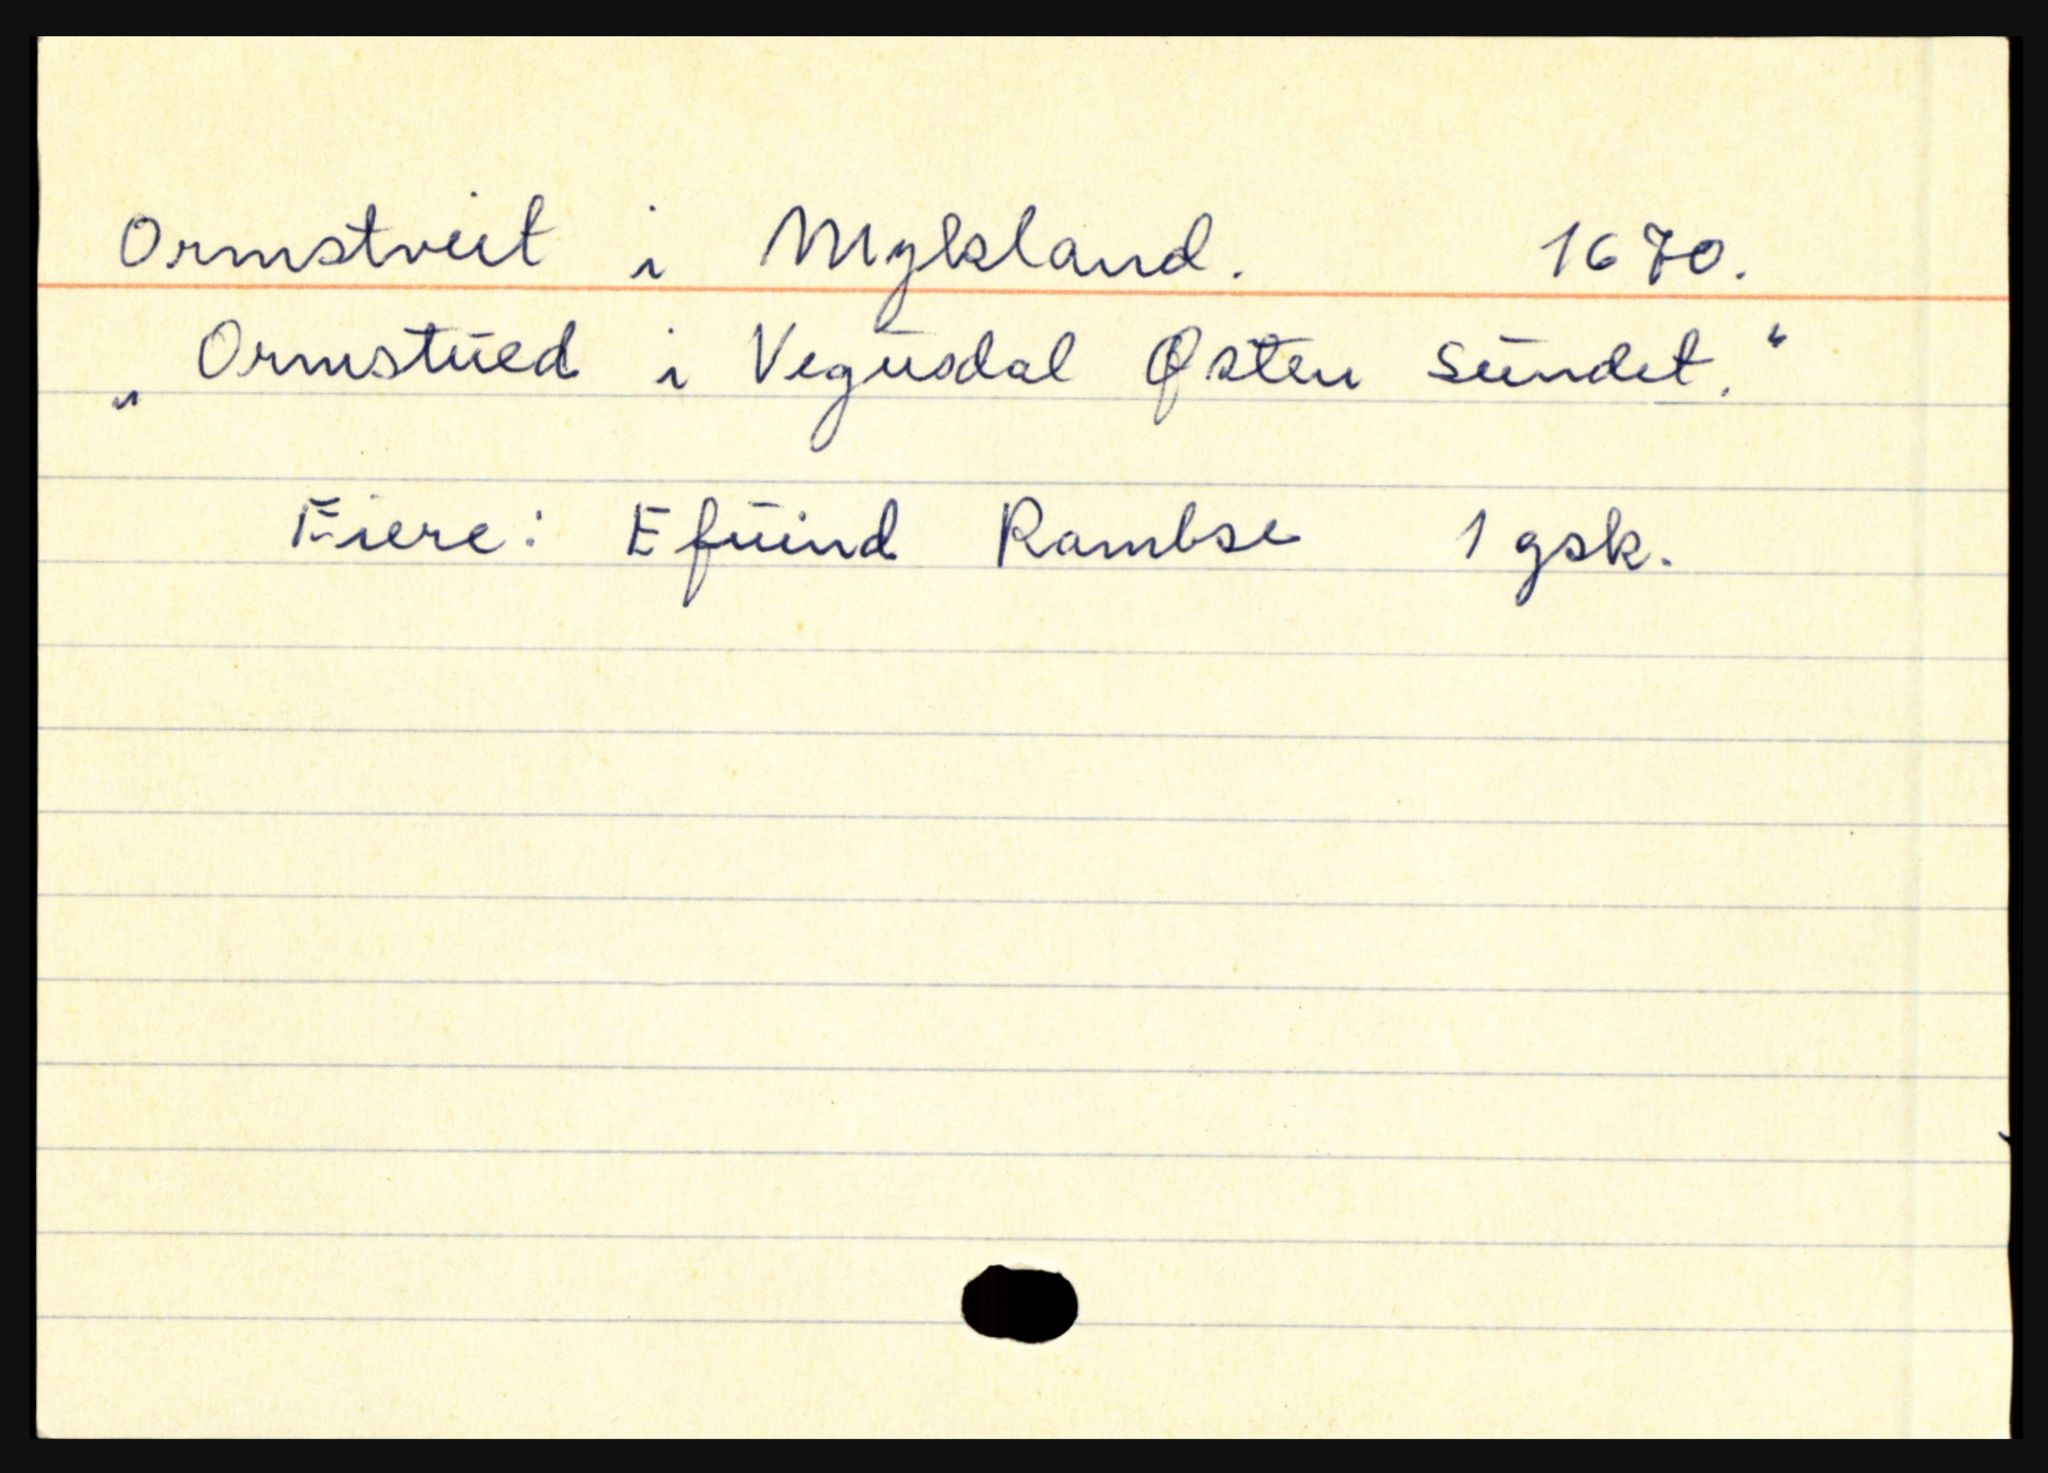 Ormstveit i Mykland. 1670.
„Ormstued i Vegusdal Østen Sundet.“
Eiere: Efuind Rambse 1 gsk.